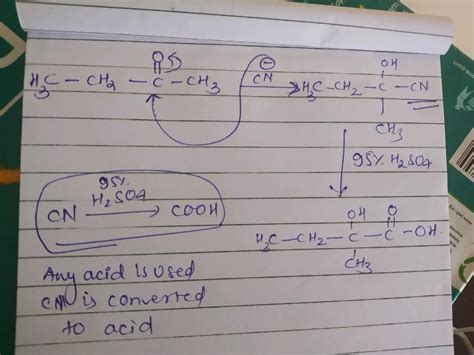 O
H₃C – CH₂ – C – CH₃
⊖
CN
OH
H₃C – CH₂ – C – CN
CH₃
95% H₂SO₄
95%
H₂SO₄
CN → COOH
OH O
H₃C – CH₂ – C – C – OH
CH₃
Any acid is used
CN is converted
to acid